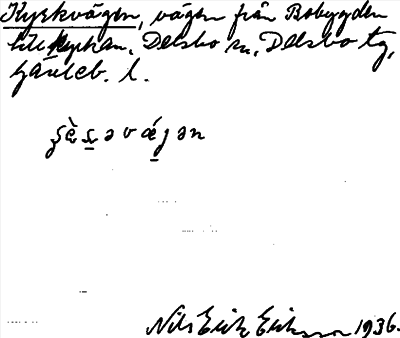 Kyrkvägen, vägen från Bobygden
till kyrkan, Delsbo sn, Delsbo tg,
Gävleb. l.
Nils Erik Eriksson 1936.